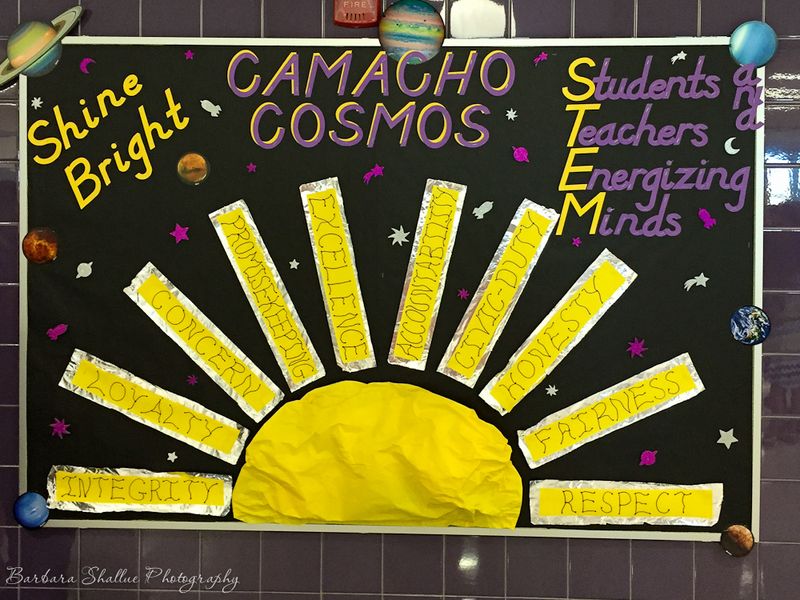 FIRE
CAMACHO
COSMOS
Shine
Bright
Students and
Teachers
Energizing
Minds
INTEGRITY
LOYALTY
CONCERN
PROMISE-KEEPING
EXCELLENCE
ACCOUNTABILITY
CIVIC-DUTY
HONESTY
FAIRNESS
RESPECT
Barbara Shallue Photography